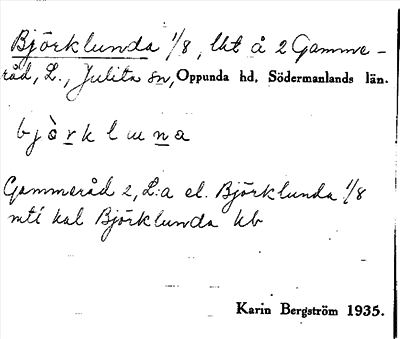 Björklunda 1/8, lht å 2 Gamme-
råd, L., Julita sn, Oppunda hd, Södermanlands län.
bjö̀rkluna
Gammeråd 2, L:a el. Björklunda 1/8
mti kal Björklunda kb
Karin Bergström 1935.